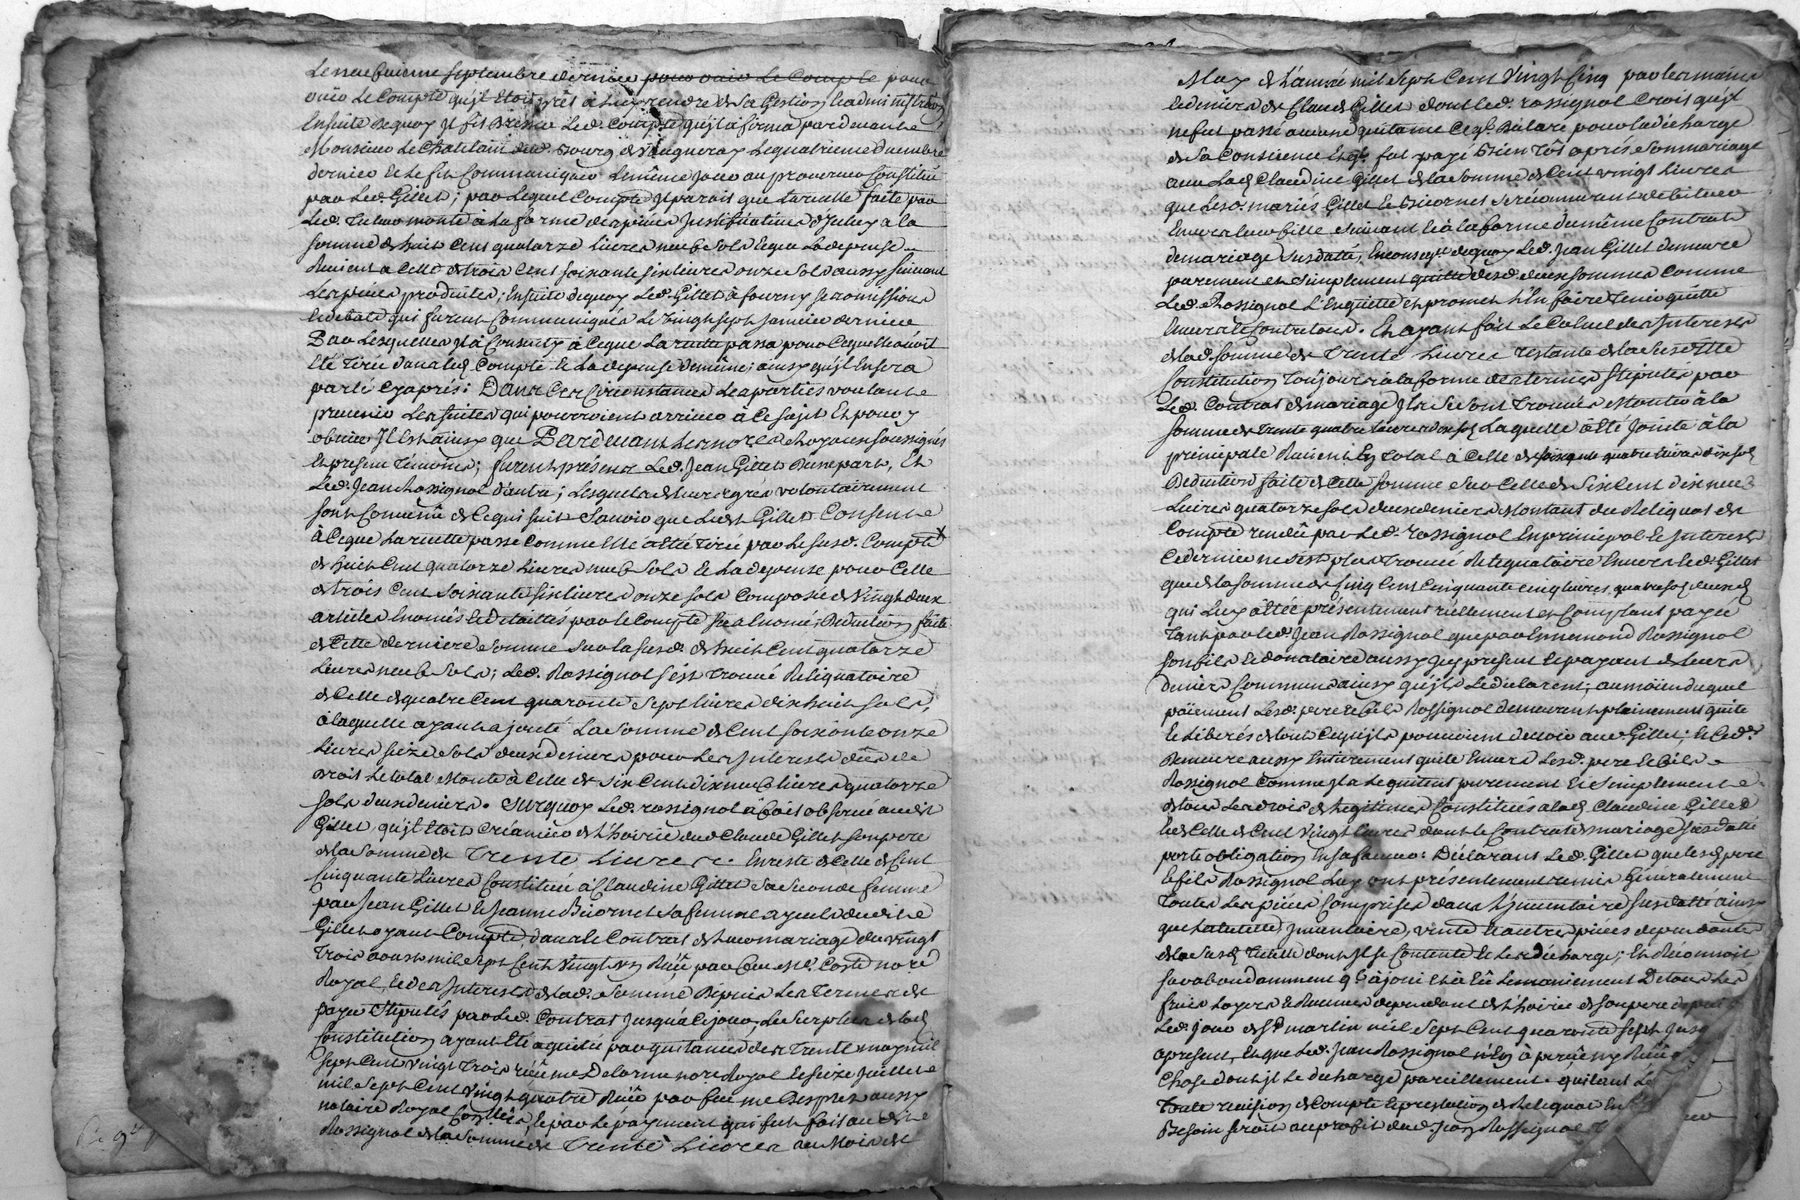 Le neufvieme septembre dernier pour ouir Le Compte pour
ouir Le Compte qu'jl Etoit prêt à Luy rendre de Sa Gestion & administration
Ensuitte Dequoy Jl fit Dresser Led. Compte qu'jl affirma pardevant
Monsieur Le Chatelain dud. Bourg de Vaugneray Le quatrieme
dernier Et Le fit Communiquer Le même jour au procureur Constitué
par Led. Gillet; par Lequel Compte Jl parait que La recette faite par
Led. Tuteur monte à La forme des pieces Justificatives d'Jceluy à la
somme de huit Cent quatorze Livres neuf Sols Et que La depense
Revient a Celle de trois Cent soixante six Livres onze Sols aussy suivant
Les pieces produittes; Ensuite dequoy Led. Gillet à fourny ses omissions
Et debats qui furent Communiqués Le vingt sept Janvier dernier
Par Lesquelles Jl à Consenty à Ce que La recette passa pour Ce qu'Elle avoit
Eté Tirée dans led. Compte Et La depense de même; ainsy qu'jl En sera
parlé Cy après: Dans Ces Circonstances Les parties voulant
prevenir Les suites qui pourroient arriver à Ce sujet Et pour y
obvier Jl Est ainsy que Pardevant Les no.res Royaux soussignés
Et presens Témoins; furent présens Led. Jean Gillet D'une part, Et
Led. Jean Rossignol d'autre; Lesquels de Leurs grés volontairement
sont Convenûs de Ce qui suit Savoir que Led. Gillet Consent
à Ce que La recette passe Comme Elle à Eté Tirée par Le Susd. Compte
de huit Cent quatorze Livres neuf Sols Et La depense pour Celle
de trois Cent Soixante six Livres onze sols Composée de vingt deux
articles Enoncés Et detaillés par le Compte sus Enoncé; Deduction faite
de Cette derniere Somme sur La Susd. de huit Cent quatorze
Livres neuf Sols; Led. Rossignol s'Est Trouvé Reliquatoire
de Celle de quatre Cent quarante sept Livres dix huit Sols,
à laquelle ayant ajouté La Somme de Cent soixante onze
Livres seize Sols deux deniers pour Les Jnterests dûs de
droit Le total Monte à Celle de Six Cent dix neuf Livres quatorze
Sols deux deniers. Surquoy Led. rossignol à fait observé audit
Gillet, qu'jl Etoit Créancier de L'hoirie dud. Claude Gillet son pere
de la Somme de Trente Livres. En reste de Celle de Cent
Cinquante Livres Constituée à Claudine Gillet Sa Seconde femme
par Jean Gillet Et Jeanne Bicornet Sa femme ayeuls dudit
Gillet oyant Compte, dans le Contrat de Leur mariage du vingt
Trois aoust mil Sept Cent Vingt un Reçû par feu Me. Coste no.re
Royal, Et des Jnterests de lad. Somme Depuis Les Termes de
payes Stipulés par Led. Contrat Jusqu'à Ce jour, Le Surplus de lad.
Constitution ayant Eté aquitté par quittances des Trente may mil
Sept Cent Vingt Trois reçûe Me Delorme no.re Royal Et seize Juillet
mil Sept Cent vingt quatre Reçû par feu me Despres aussy
notaire Royal, Et par Le payement qui fut fait audit
Rossignol de la Somme de Trente Livres au Mois de
May de L'année mil Sept Cent Vingt Cinq par les mains
Et deniers de Claude Gillet dont Led. rossignol Croit qu'jl
ne fut passé aucune quitance Ce q'jl Déclare pour la décharge
de Sa Conscience Et q'jl fut payé Bien Tôt aprés Son mariage
avec Lad. Claudine Gillet de la Somme de Cent vingt Livres
que Lesd. mariés Gillet Et Bicornet Se reconnurent debiteurs
Envers Leur fille Suivant Et à la forme du même Contrat
de mariage Susdatté, En conseq.ce dequoy Led. Jean Gillet demeure
purement et Simplement quitte desd. deux sommes Comme
Led. Rossignol L'En quitte et promet L'En faire Tenir quitte
Envers Et Contre tous. Et ayant fait Le Calcul des Jnterests
de lad. somme de Trente Livres restante de la Susditte
Constitution Toujours à la forme des termes Stipulés par
Led. Contrat de mariage Jls Se sont Trouvés Monter à la
Somme de Trente quatre Livres dix sols Laquelle à Eté Jointe à la
principale Revient En Total à Celle de soixante quatre Livres dix sols
Deduction faite de Cette somme Sur Celle de Six Cent dix neuf
Livres quatorze sols deux deniers Montant du Reliquat de
Compte rendu par Led. rossignol En principal Et Jnterests
Ce dernier ne s'est plus Trouvé Reliquatoire Envers Led. Gillet
que de la Somme de Cinq Cent Cinquante Cinq Livres quatre sols deux d.
qui Luy à Eté présentement réellement et Comptant payée
Tant par led. Jean Rossignol que par Ennemond Rossignol
son fils Et donataire aussy Jcy present Et payant de Leurs
Deniers Communs ainsy qu'jls Le declarent; au moïen duquel
païement Lesd. pere Et fils Rossignol demeurent plainement quitte
Et Liberés de tout Ce qu'jls pouvoient devoir aud. Gillet; Et Led.
Demeure aussy Entierement quitte Envers Lesd. pere Et fils
Rossignol Comme Jls Le quittent purement Et Simplement
de tous Les droits de Legitimes Constitués à lad. Claudine Gillet
Et de Celle de Cent Vingt Livres dont le Contrat de mariage Susdatté
porte obligation En sa faveur: Déclarant Led. Gillet que Lesd. pere
Et fils Rossignol Luy ont présentement remis Généralement
Toutes Les pieces Comprises dans L'Jnventaire Susdatté ainsy
que La tutelle Jnventaire, vente Et autres pieces dependantes
de la Susd. Tutelle dont Jl Se Contente Et Les décharge; Et Réconnoit
surabondamment q'jl à joui Et à Eû Le maniement De tous Les
fruits Loyers & Revenus dependant de L'hoirie de Son pere depuis
Led. jour de St. martin mil Sept Cent quarante sept Jusq
apresent, Et que Led. Jean Rossignol n'En à perçû ny Reçû
Chose dont Jl Le decharge pareillement quitant
Toute revision de Compte Et prestation de Reliquat
Besoin Seroit au profit dud. Jean Rossignol